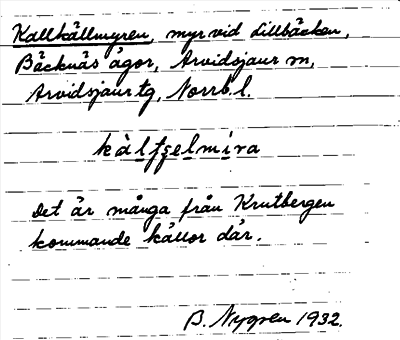 Kallkällmyren, myr vid Lillbäcken,
Bäcknäs ägor, Arvidsjaur sn,
Arvidsjaurs tg, Norrb. l.
kàlfʂelmíra
Det är många från Krutbergen
kommande källor där.
B. Nygren 1932.